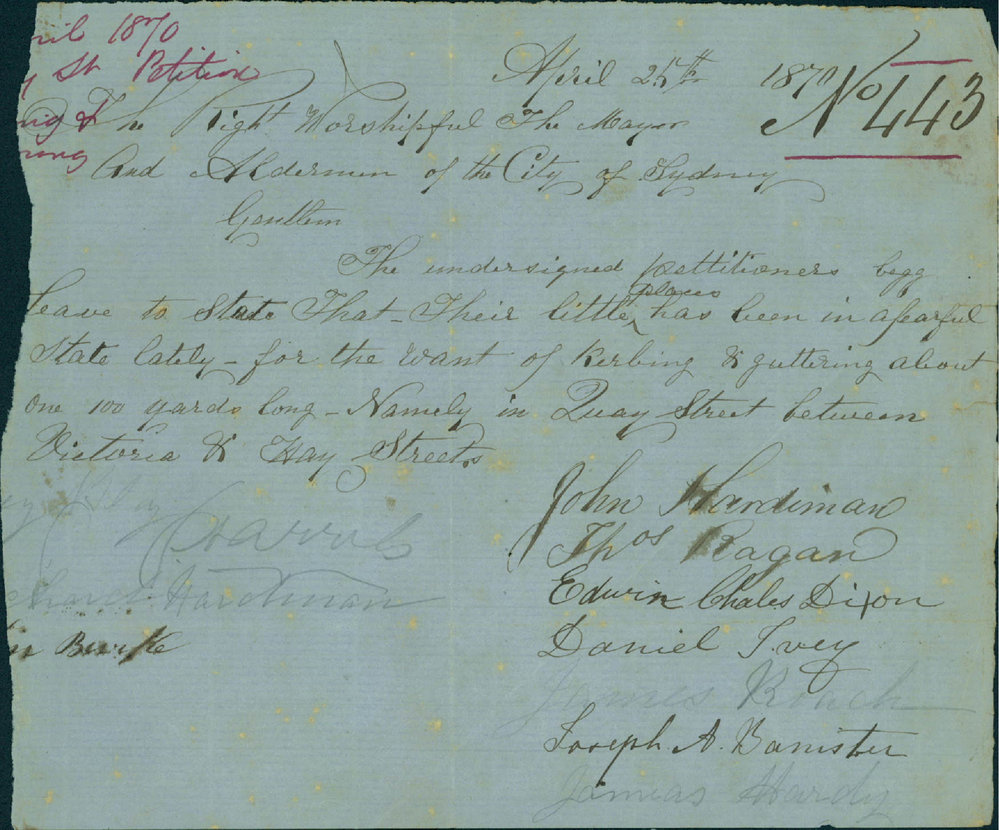 April 25th 1870
No 443
1870
St Petition
&
The Right Worshipful The Mayor
And Aldermen of the City of Sydney
Gentlem
The undersigned pettitioners begg
leave to State That - Their little places has been in a fearful
State lately - for the want of Kerbing & guttering about
one 100 yards long - Namely in Quay Street between
Victoria & Hay Streets
John Hardiman
Thos Ragan
Edwin Chales Dixon
Daniel Ivey
James Roach
Joseph A. Banister
James Hardy
Hardiman
Burke